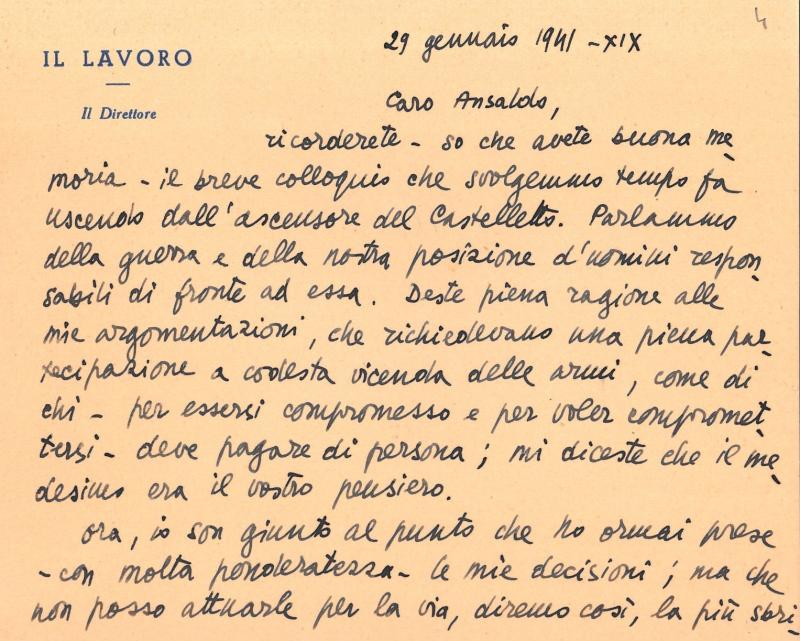 4
29 gennaio 1941 - XIX
IL LAVORO
Il Direttore
Caro Ansaldo,
ricorderete - so che avete buona me-
moria - il breve colloquio che svolgemmo tempo fa
uscendo dall'ascensore del Castelletto. Parlammo
della guerra e della nostra posizione d'uomini respon-
sabili di fronte ad essa. Deste piena ragione alle
mie argomentazioni, che richiedevano una piena par-
tecipazione a codesta vicenda delle armi, come di
chi - per essersi compromesso e per voler compromet-
tersi - deve pagare di persona; mi diceste che il me-
desimo era il vostro pensiero.
Ora, io son giunto al punto che ho ormai prese
- con molta ponderatezza - le mie decisioni; ma che
non posso attuarle per la via, diremo così, la più sbri-